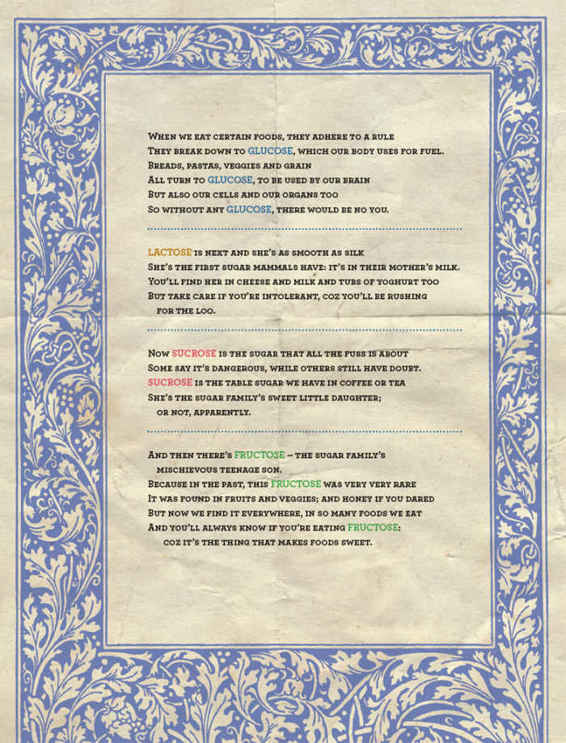 When we eat certain foods, they adhere to a rule
They break down to GLUCOSE, which our body uses for fuel.
Breads, pastas, veggies and grain
All turn to GLUCOSE, to be used by our brain
But also our cells and our organs too
So without any GLUCOSE, there would be no you.
LACTOSE is next and she's as smooth as silk
She's the first sugar mammals have: it's in their mother's milk.
You'll find her in cheese and milk and tubs of yoghurt too
But take care if you're intolerant, coz you'll be rushing
for the loo.
Now SUCROSE is the sugar that all the fuss is about
Some say it's dangerous, while others still have doubt.
SUCROSE is the table sugar we have in coffee or tea
She's the sugar family's sweet little daughter;
or not, apparently.
And then there's FRUCTOSE – the sugar family's
mischievous teenage son.
Because in the past, this FRUCTOSE was very very rare
It was found in fruits and veggies; and honey if you dared
But now we find it everywhere, in so many foods we eat
And you'll always know if you're eating FRUCTOSE:
coz it's the thing that makes foods sweet.